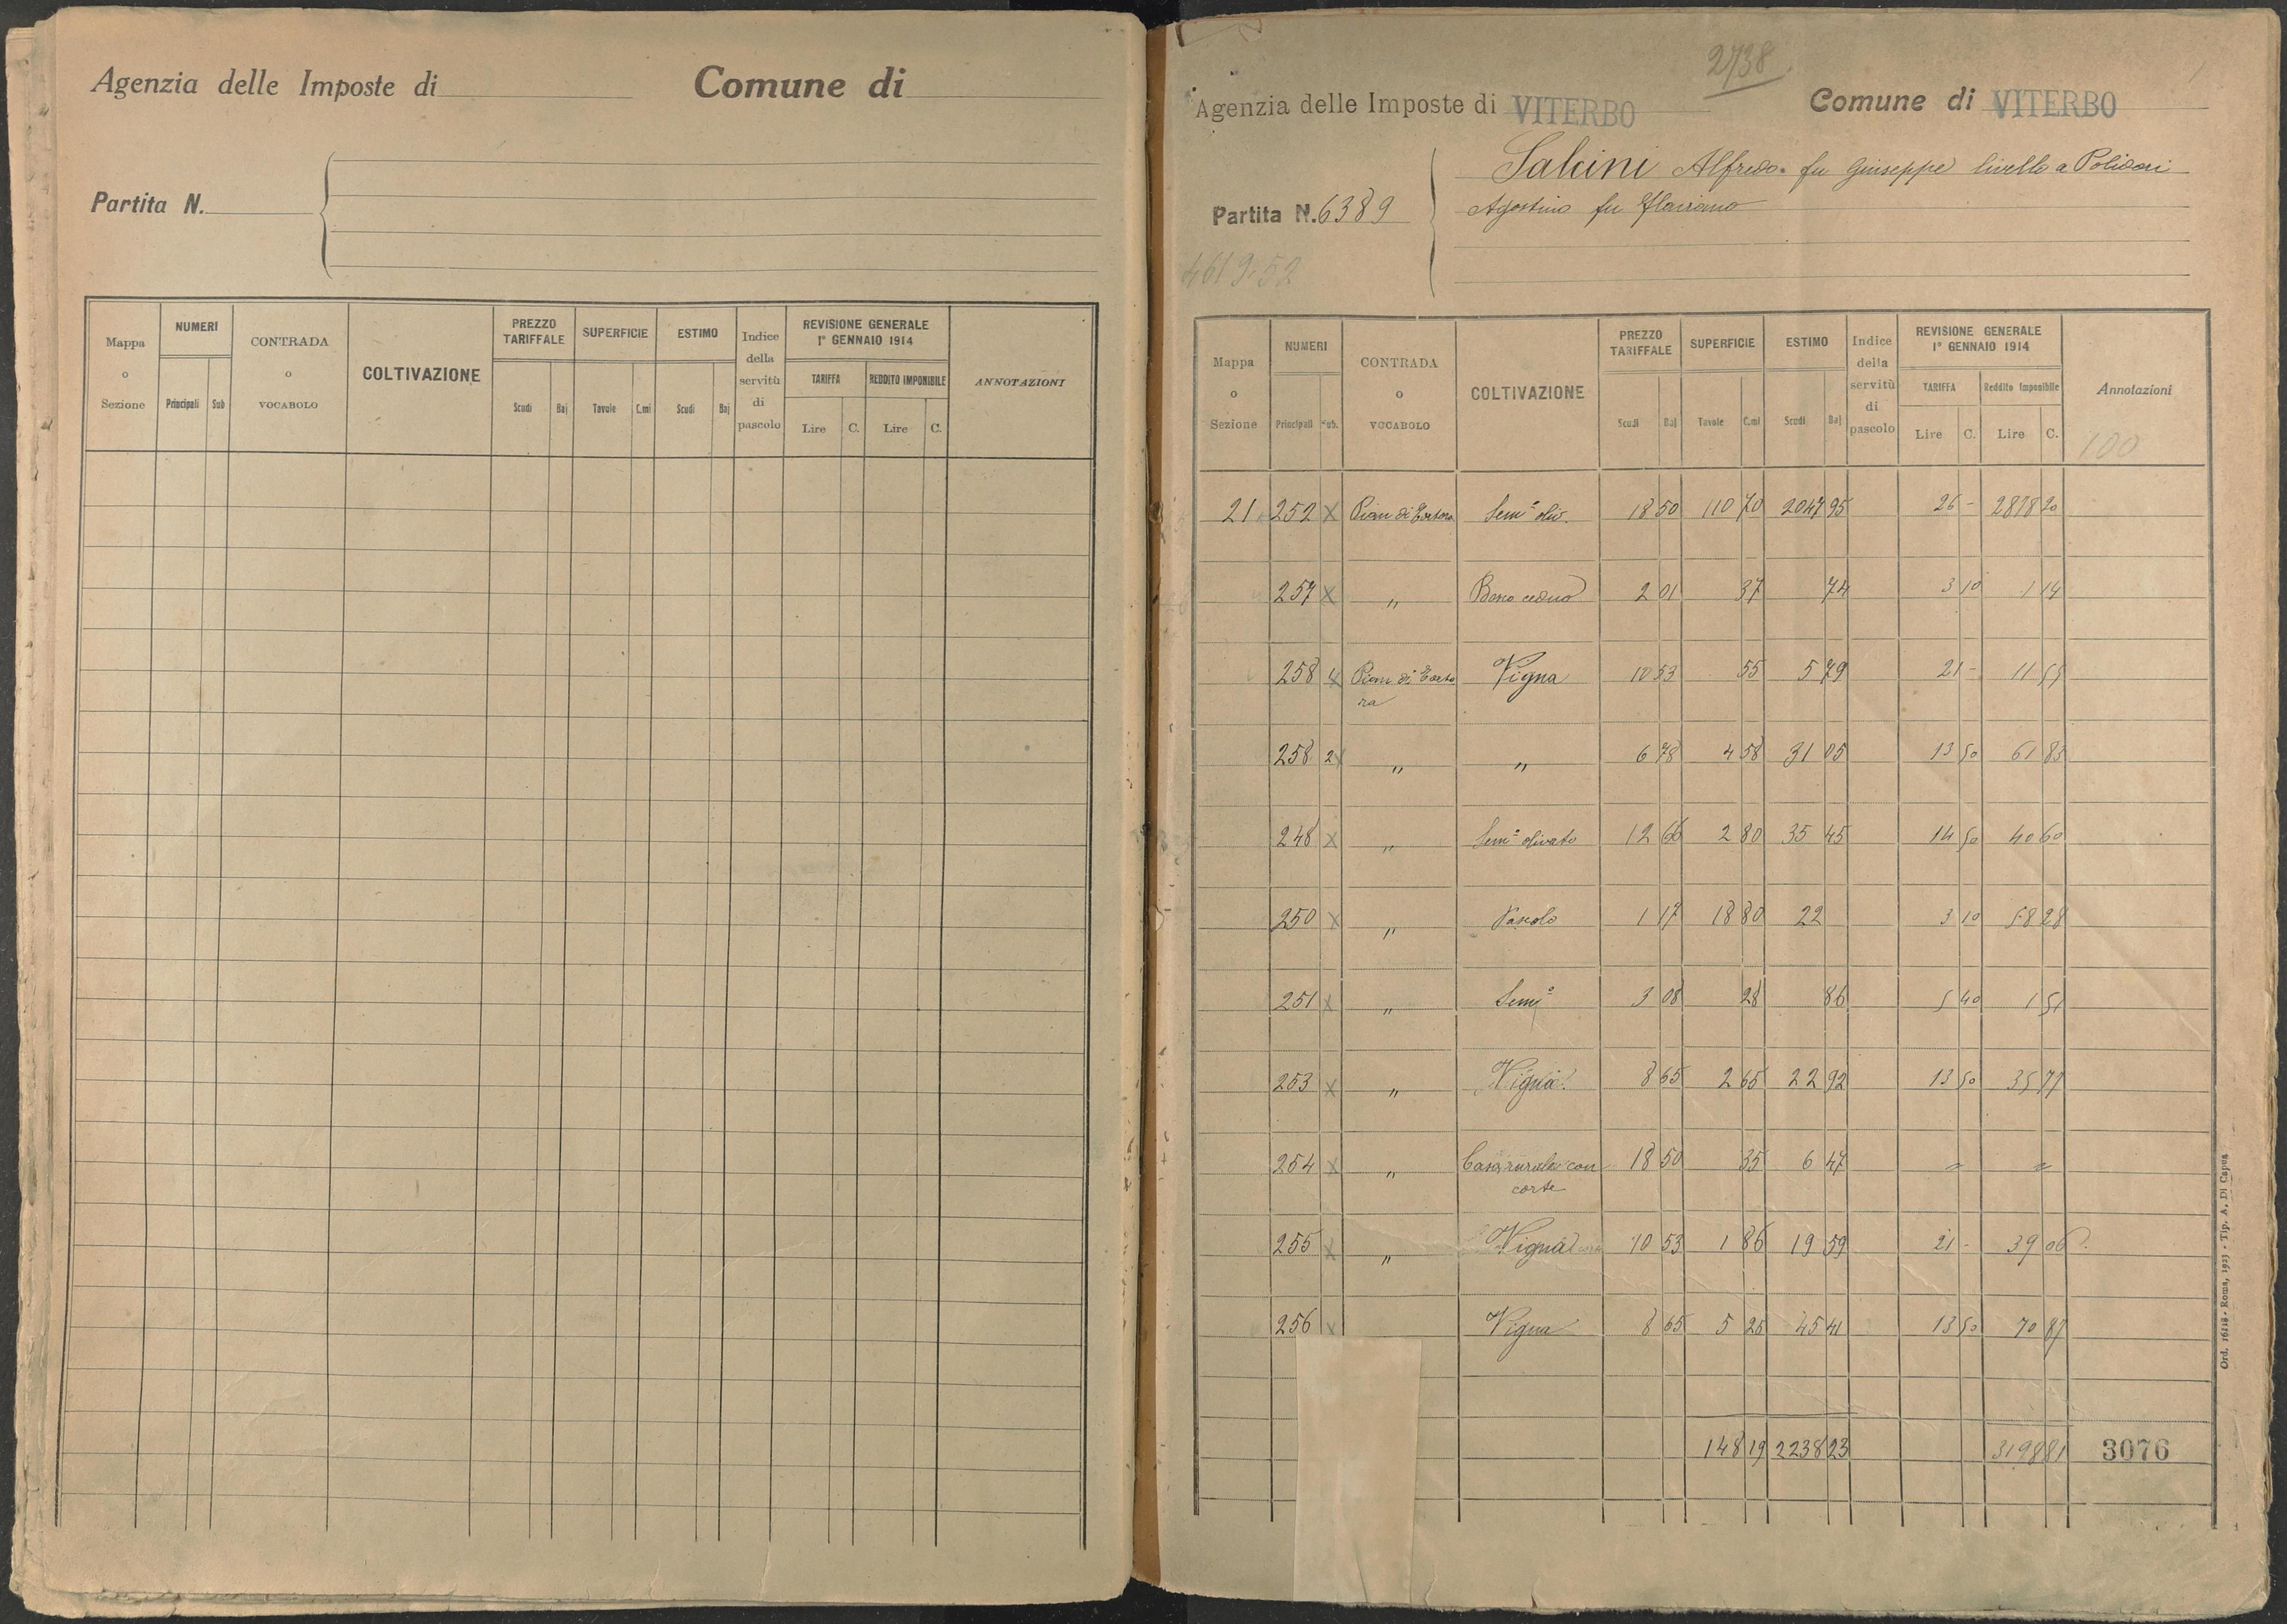 Agenzia delle Imposte di Comune di
Partita N.
Mappa o Sezione NUMERI CONTRADA o VOCABOLO COLTIVAZIONE PREZZO TARIFFALE SUPERFICIE ESTIMO Indice della servitù di pascolo REVISIONE GENERALE 1° GENNAIO 1914 ANNOTAZIONI
TARIFFA REDDITO IMPONIBILE
Principali Sub Scudi Baj Tavole C.mi Scudi Baj Lire C. Lire C.
2738
Agenzia delle Imposte di VITERBO Comune di VITERBO
Salcini Alfredo fu Giuseppe livello a Polidori
Partita N. 6389 Agostino fu
4619.52
Mappa o Sezione NUMERI CONTRADA o VOCABOLO COLTIVAZIONE PREZZO TARIFFALE SUPERFICIE ESTIMO Indice della servitù di pascolo REVISIONE GENERALE 1° GENNAIO 1914 Annotazioni
TARIFFA Reddito Imponibile
Principali Sub. Scudi Baj Tavole C.mi Scudi Baj Lire C. Lire C.
100
21 252 x Pian di Sem° oliv. 18 50 110 70 2047 95 26 - 2878 20
257 x " Bosco ceduo 2 01 37 74 3 10 1 14
258 Pian di Vigna 10 53 55 5 79 21 - 11 55
258 2 " " 6 78 4 58 31 05 13 50 61 83
248 x " Sem° olivato 12 66 2 80 35 45 14 50 40 60
250 x " Pascolo 1 17 18 80 22 3 10 58 28
251 x " Sem° 3 08 28 86 5 40 1 51
253 x " Vigna 8 65 2 65 22 92 13 50 35 77
254 x " Casa rurale con corte 18 50 35 6 47 " "
255 x " Vigna 10 53 1 86 19 59 21 - 39 06
256 x Vigna 8 65 5 25 45 41 13 50 70 87
148 19 2238 23 3198 81 3076
Ord. 16218 - Roma, 1923 - Tip. A. Di Capua